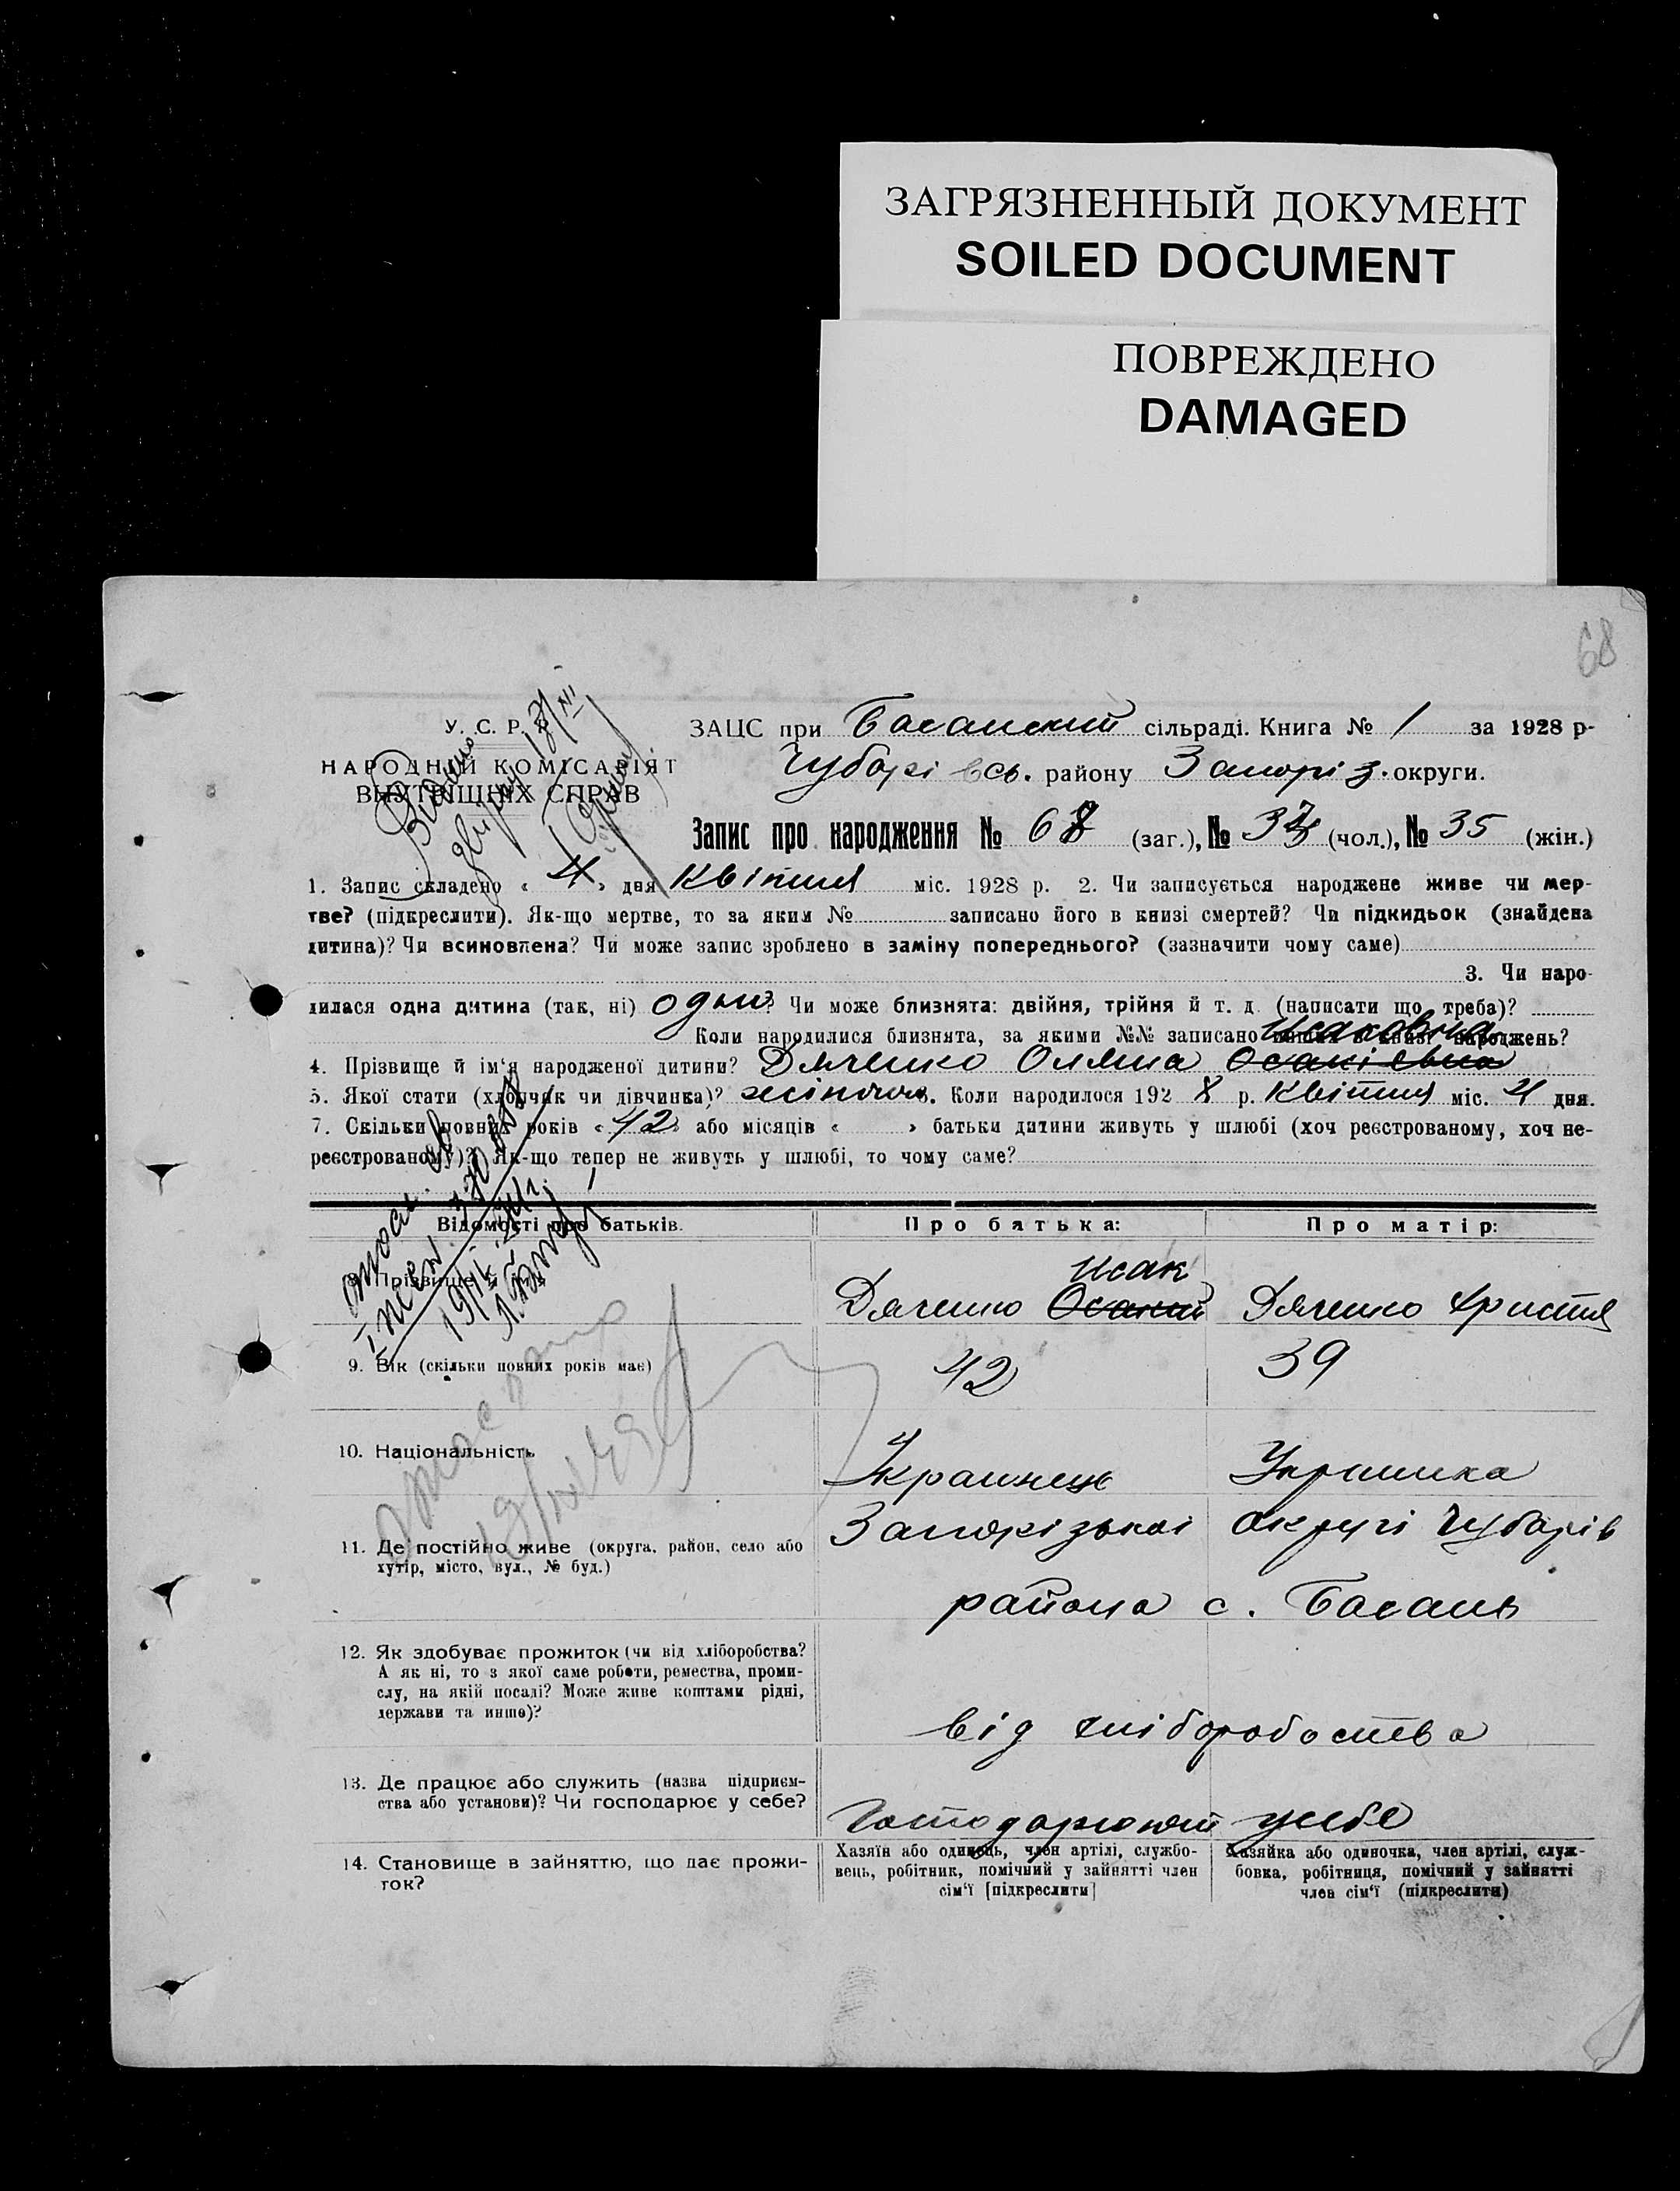 ЗАГРЯЗНЕННЫЙ ДОКУМЕНТ
SOILED DOCUMENT
ПОВРЕЖДЕНО
DAMAGED
68
У. С. Р. Р.
НАРОДНІЙ КОМІСАРІЯТ
ВНУТРІШНІХ СПРАВ
ЗАЦС при Басанский сільраді. Книга № 1 за 1928 р-
Чубарівсь. району Запоріз. округи.
Запис про народження № 67 (заг.), № (чол.), № 35 (жін.)
1. Запис складено « 4 » дня Квітня міс. 1928 р. 2. Чи записується народжене живе чи мер-
тве? (підкреслити). Як-що мертве, то за яким № записано його в книзі смертей? Чи підкидьок (знайдена
дитина)? Чи всиновлена? Чи може запис зроблено в заміну попереднього? (зазначити чому саме)
3. Чи наро-
дилася одна дитина (так, ні) одно? Чи може близнята: двійня, трійня й т. д. (написати що треба)?
Коли народилися близнята, за якими №№ записано інших в книзі народжень?
Исаковна
4. Прізвище й ім'я народженої дитини? Дяченко Оляна
5. Якої стати (хлопчик чи дівчинка)? жіноча 6. Коли народилося 192 8 р. Квітня міс. 4 дня.
7. Скільки повних років « 42 » або місяців « » батьки дитини живуть у шлюбі (хоч реєстрованому, хоч не-
реєстрованому)? Як-що тепер не живуть у шлюбі, то чому саме?
Відомості про батьків. Про батька: Про матір:
Исак
8. Прізвище й ім'я Дяченко Дяченко Христя
9. Вік (скільки повних років має) 42 39
10. Національність Украинець Украинка
11. Де постійно живе (округа, район, село або
хутір, місто, вул., № буд.)
Запорізькоі округи Чубарів
района с. Басань
12. Як здобуває прожиток (чи від хліборобства?
А як ні, то з якої саме роботи, ремества, проми-
слу, на якій посаді? Може живе коштами рідні,
держави та инше)?
від хліборобоства
13. Де працює або служить (назва підприєм-
ства або установи)? Чи господарює у себе?
Господарюют у себе
14. Становище в зайняттю, що дає прожи-
ток?
Хазяїн або одинець, член артілі, службо-
вець, робітник, помічний у зайнятті член
сім'ї [підкреслити]
Хазяйка або одиночка, член артілі, служ-
бовка, робітниця, помічний у зайнятті
член сім'ї (підкреслити)